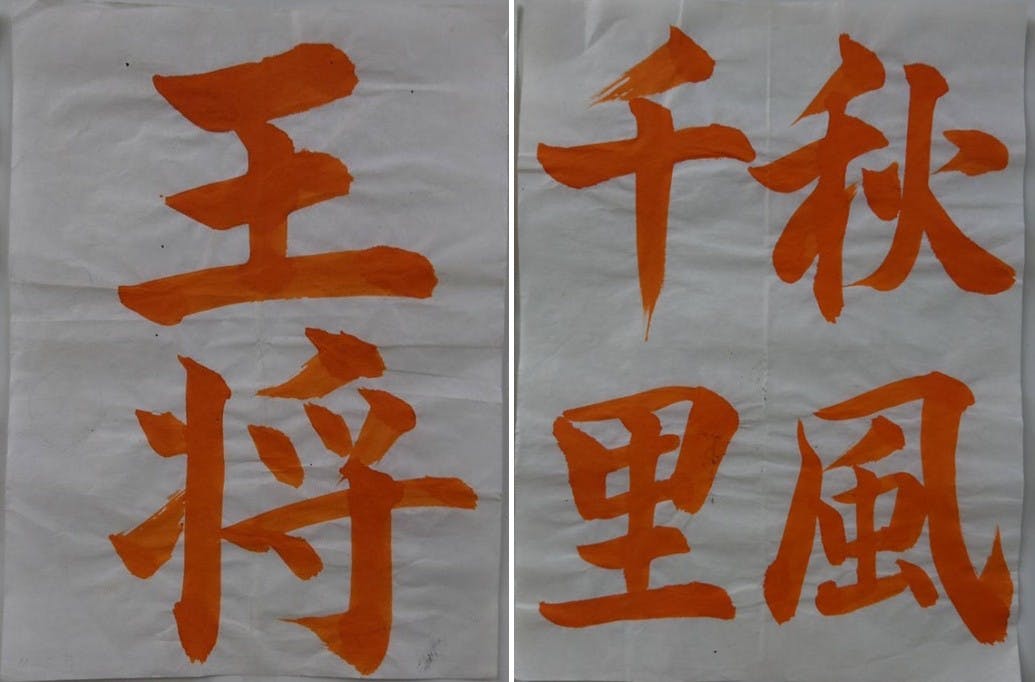 王将
秋風
千里